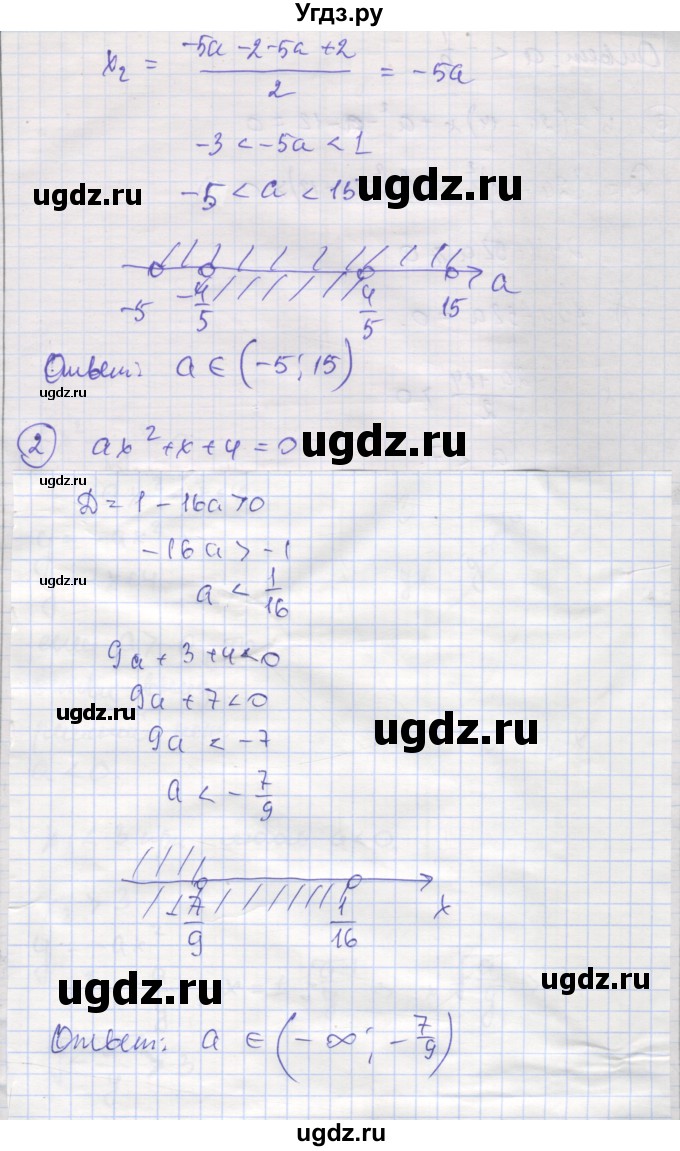 Угдз.ру
x₂ = (-5a - 2 - 5a + 2)/2 = -5a
-3 < -5a < 1
ugdz.ru -5 < a < 15 ugdz.ru
-5 -4/5 4/5 15 a
ugdz.ru
Ответ: a ∈ (-5; 15)
② ax² + x + 4 = 0 ugdz.ru
ugdz.ru
D = 1 - 16a > 0
-16a > -1
ugdz.ru
a < 1/16
9a + 3 + 4 < 0
9a + 7 < 0
ugdz.ru ugdz.ru
9a < -7
a < -7/9
-7/9 1/16 x
ugdz.ru ugdz.ru
Ответ: a ∈ (-∞; -7/9)
ugdz.ru